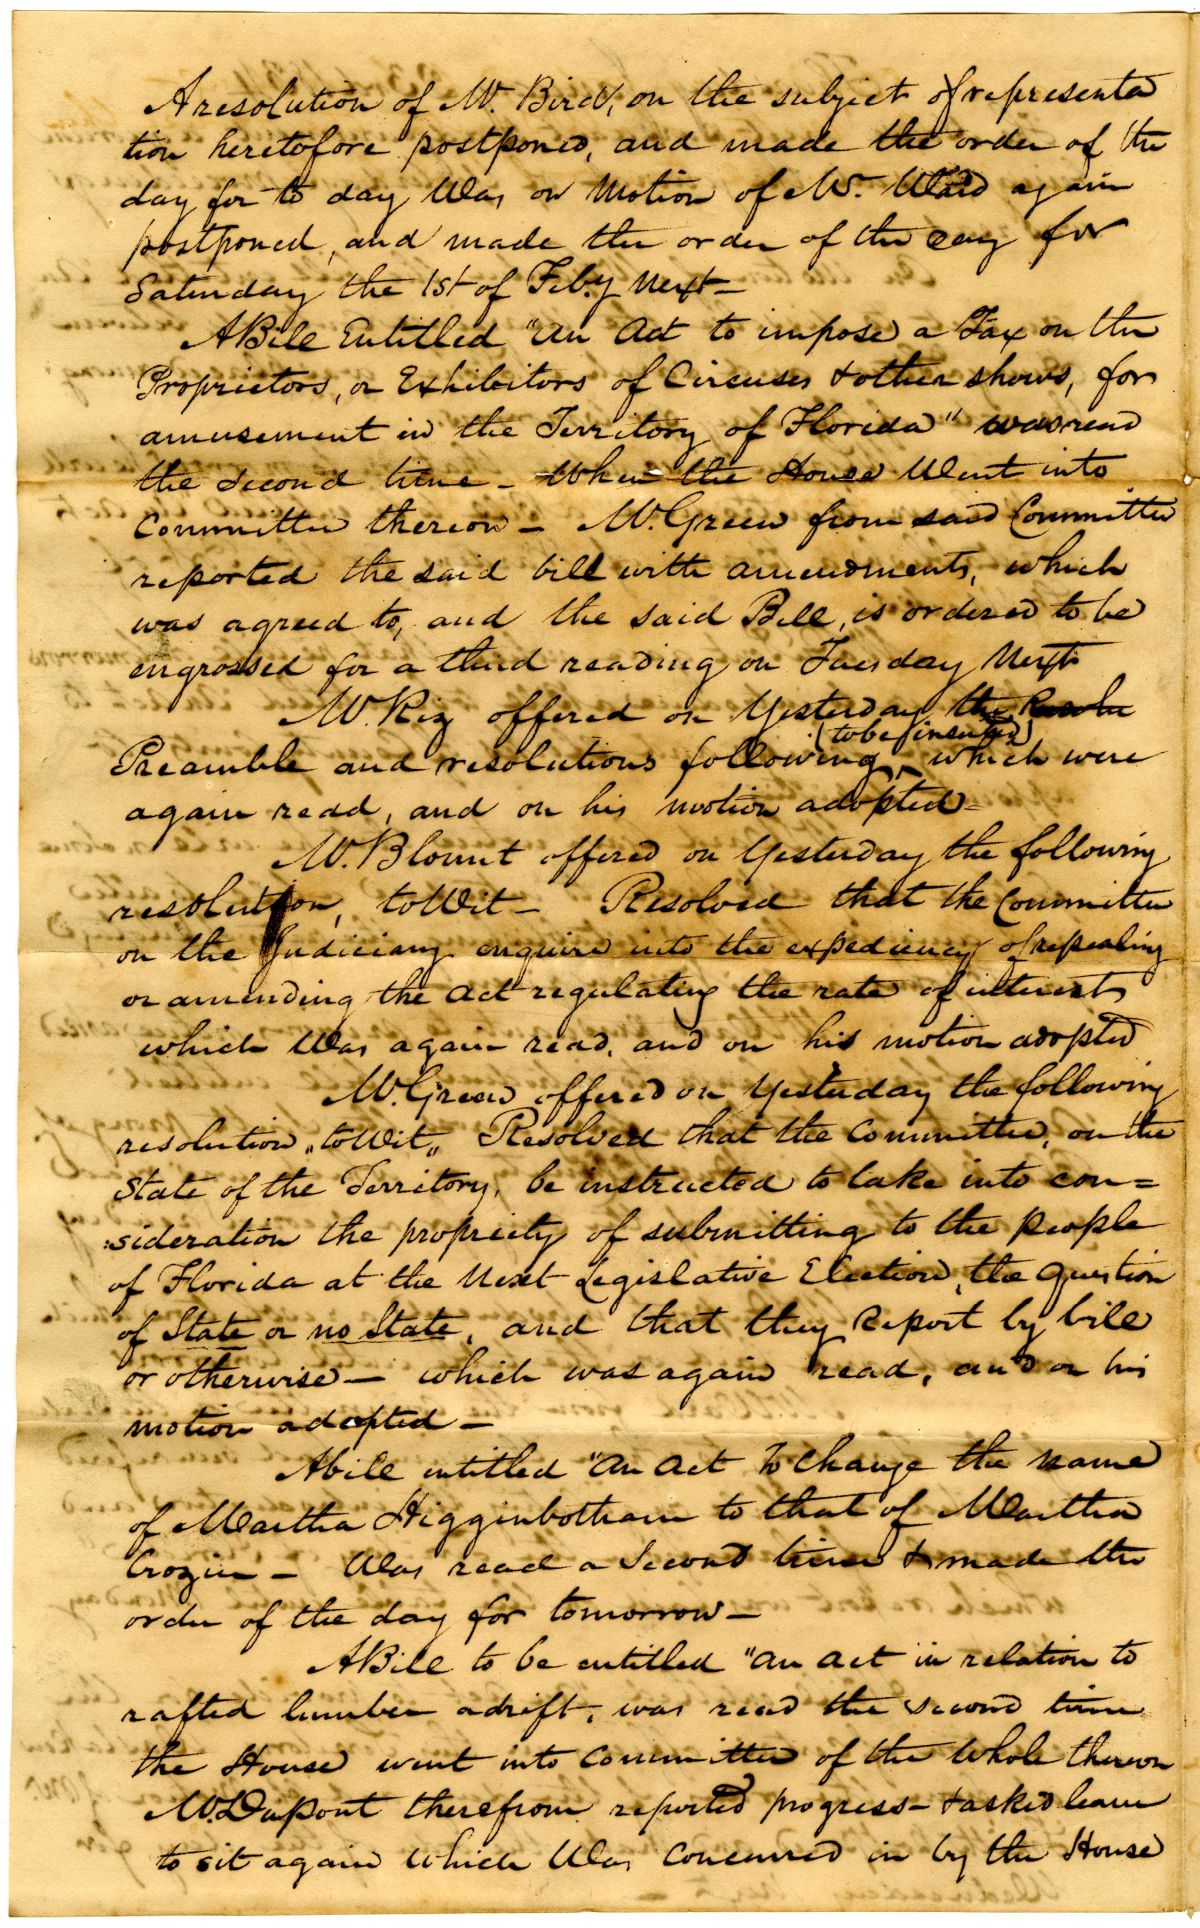 A resolution of Mr. Bird, on the subject of representa
tion heretofore postponed, and made the order of the
day for to day Was on Motion of Mr. Ward again
postponed, and made the order of the day for
Saturday the 1st of Feb.y Next—
A Bill Entitled "An Act to impose a Tax on the
Proprietors, or Exhibitors of Circuses & other shows, for
amusement in the Territory of Florida" was read
the Second time — When the House Went into
Committee thereon — Mr. Green from said Committee
reported the said bill with amendments, which
was agreed to, and the said Bill, is ordered to be
engrossed for a third reading on Tuesday Next
Mr. Riz offered on Yesterday the Resolu
(to be inserted)
Preamble and resolutions following ^ which were
again read, and on his motion adopted—
Mr. Blount offered on Yesterday the following
resolution, to Wit — Resolved that the Committee
on the Judiciary enquire into the expediency of repealing
or amending the act regulating the rate of interest
which Was again read, and on his motion adopted
Mr. Green offered on Yesterday the following
resolution „to Wit„ Resolved that the Committee, on the
State of the Territory, be instructed to take into con=
:sideration the propriety of submitting to the People
of Florida at the Next Legislative Election, the question
of State or no State, and that they Report by bill
or otherwise — which was again read, and on his
motion adopted —
A bill entitled "An act To Change the name
of Martha Higginbotham to that of Martha
Crozier — Was read a Second time & made the
order of the day for tomorrow —
A Bill to be entitled "An act in relation to
rafted lumber adrift, was read the second time
the House went into Committee of the Whole thereon
Mr. DuPont therefrom reported progress — & asked leave
to sit again which Was Concurred in by the House